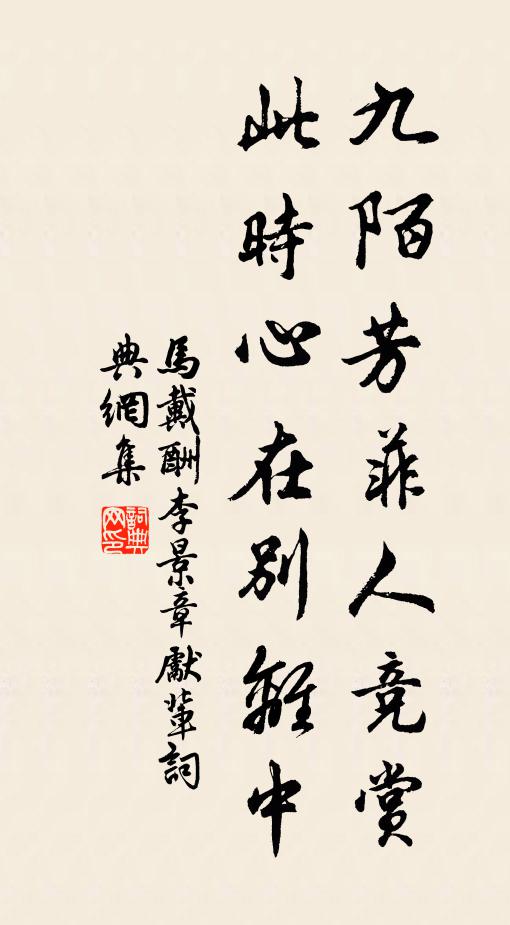 九陌芳菲人竞赏
此時心在別離中
馬戴酬李景章獻輩詞
典網集
詞典网印